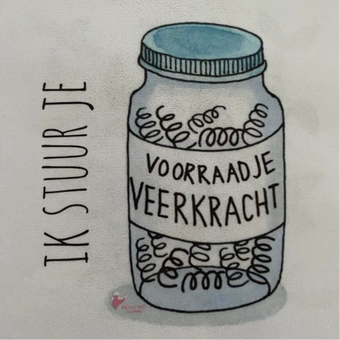 IK STUUR JE
VOORRAADJE
VEERKRACHT